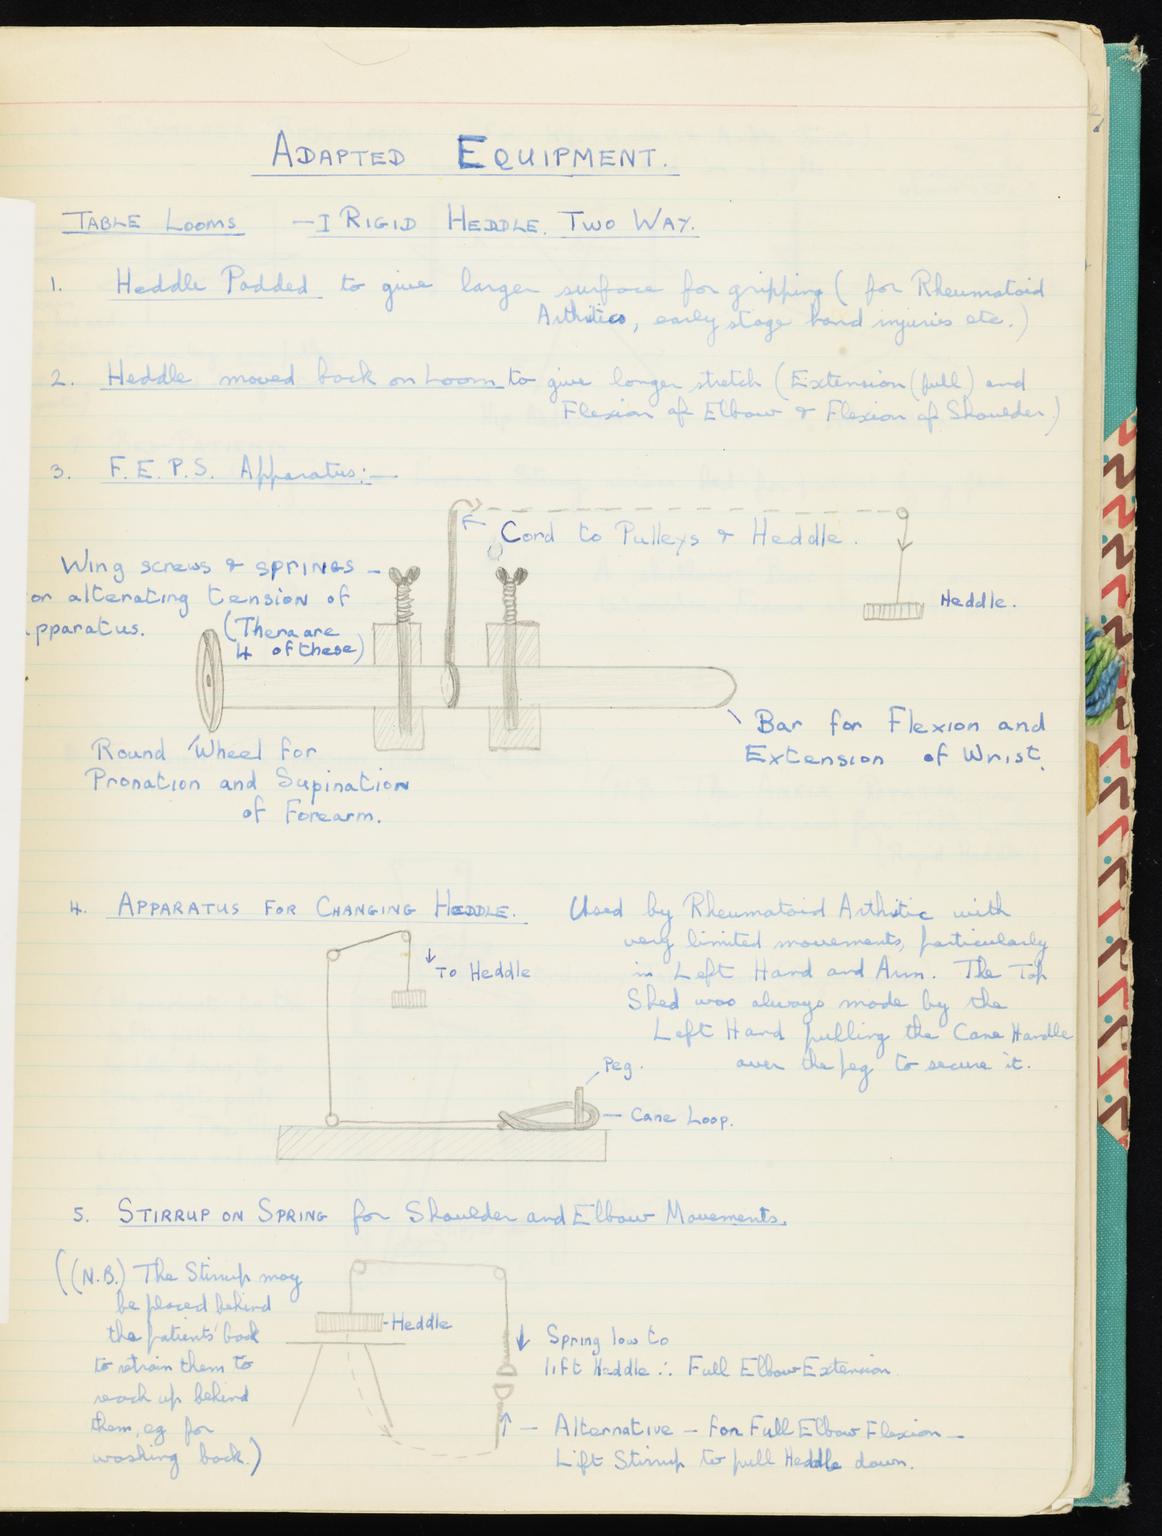 ADAPTED EQUIPMENT.
TABLE LOOMS — I RIGID HEDDLE. TWO WAY.
1. Heddle Padded to give larger surface for gripping ( for Rheumatoid
Arthritics, early stage hand injuries etc.)
2. Heddle moved back on Loom to give longer stretch (Extension (full) and
Flexion of Elbow & Flexion of Shoulder.)
3. F.E.P.S. Apparatus:—
Cord to Pulleys & Heddle.
Wing screws & SPRINGS —
or alterating tension of
pparatus.
(There are
4 of these)
Heddle.
Bar for Flexion and
Extension of Wrist.
Round Wheel for
Pronation and Supination
of Forearm.
4. APPARATUS FOR CHANGING HEDDLE.
Used by Rheumatoid Arthritic with
very limited movements, particularly
in Left Hand and Arm. The Top
Shed was always made by the
Left Hand pulling the Cane Handle
over the peg to secure it.
To Heddle
Peg.
— Cane Loop.
5. STIRRUP ON SPRING for Shoulder and Elbow Movements.
((N.B.) The Stirrup may
be placed behind
the patients' back
to retrain them to
reach up behind
them, eg for
washing back.)
-Heddle
Spring low to
lift Heddle ∴ Full Elbow Extension.
— Alternative — for Full Elbow Flexion —
Lift Stirrup to pull Heddle down.